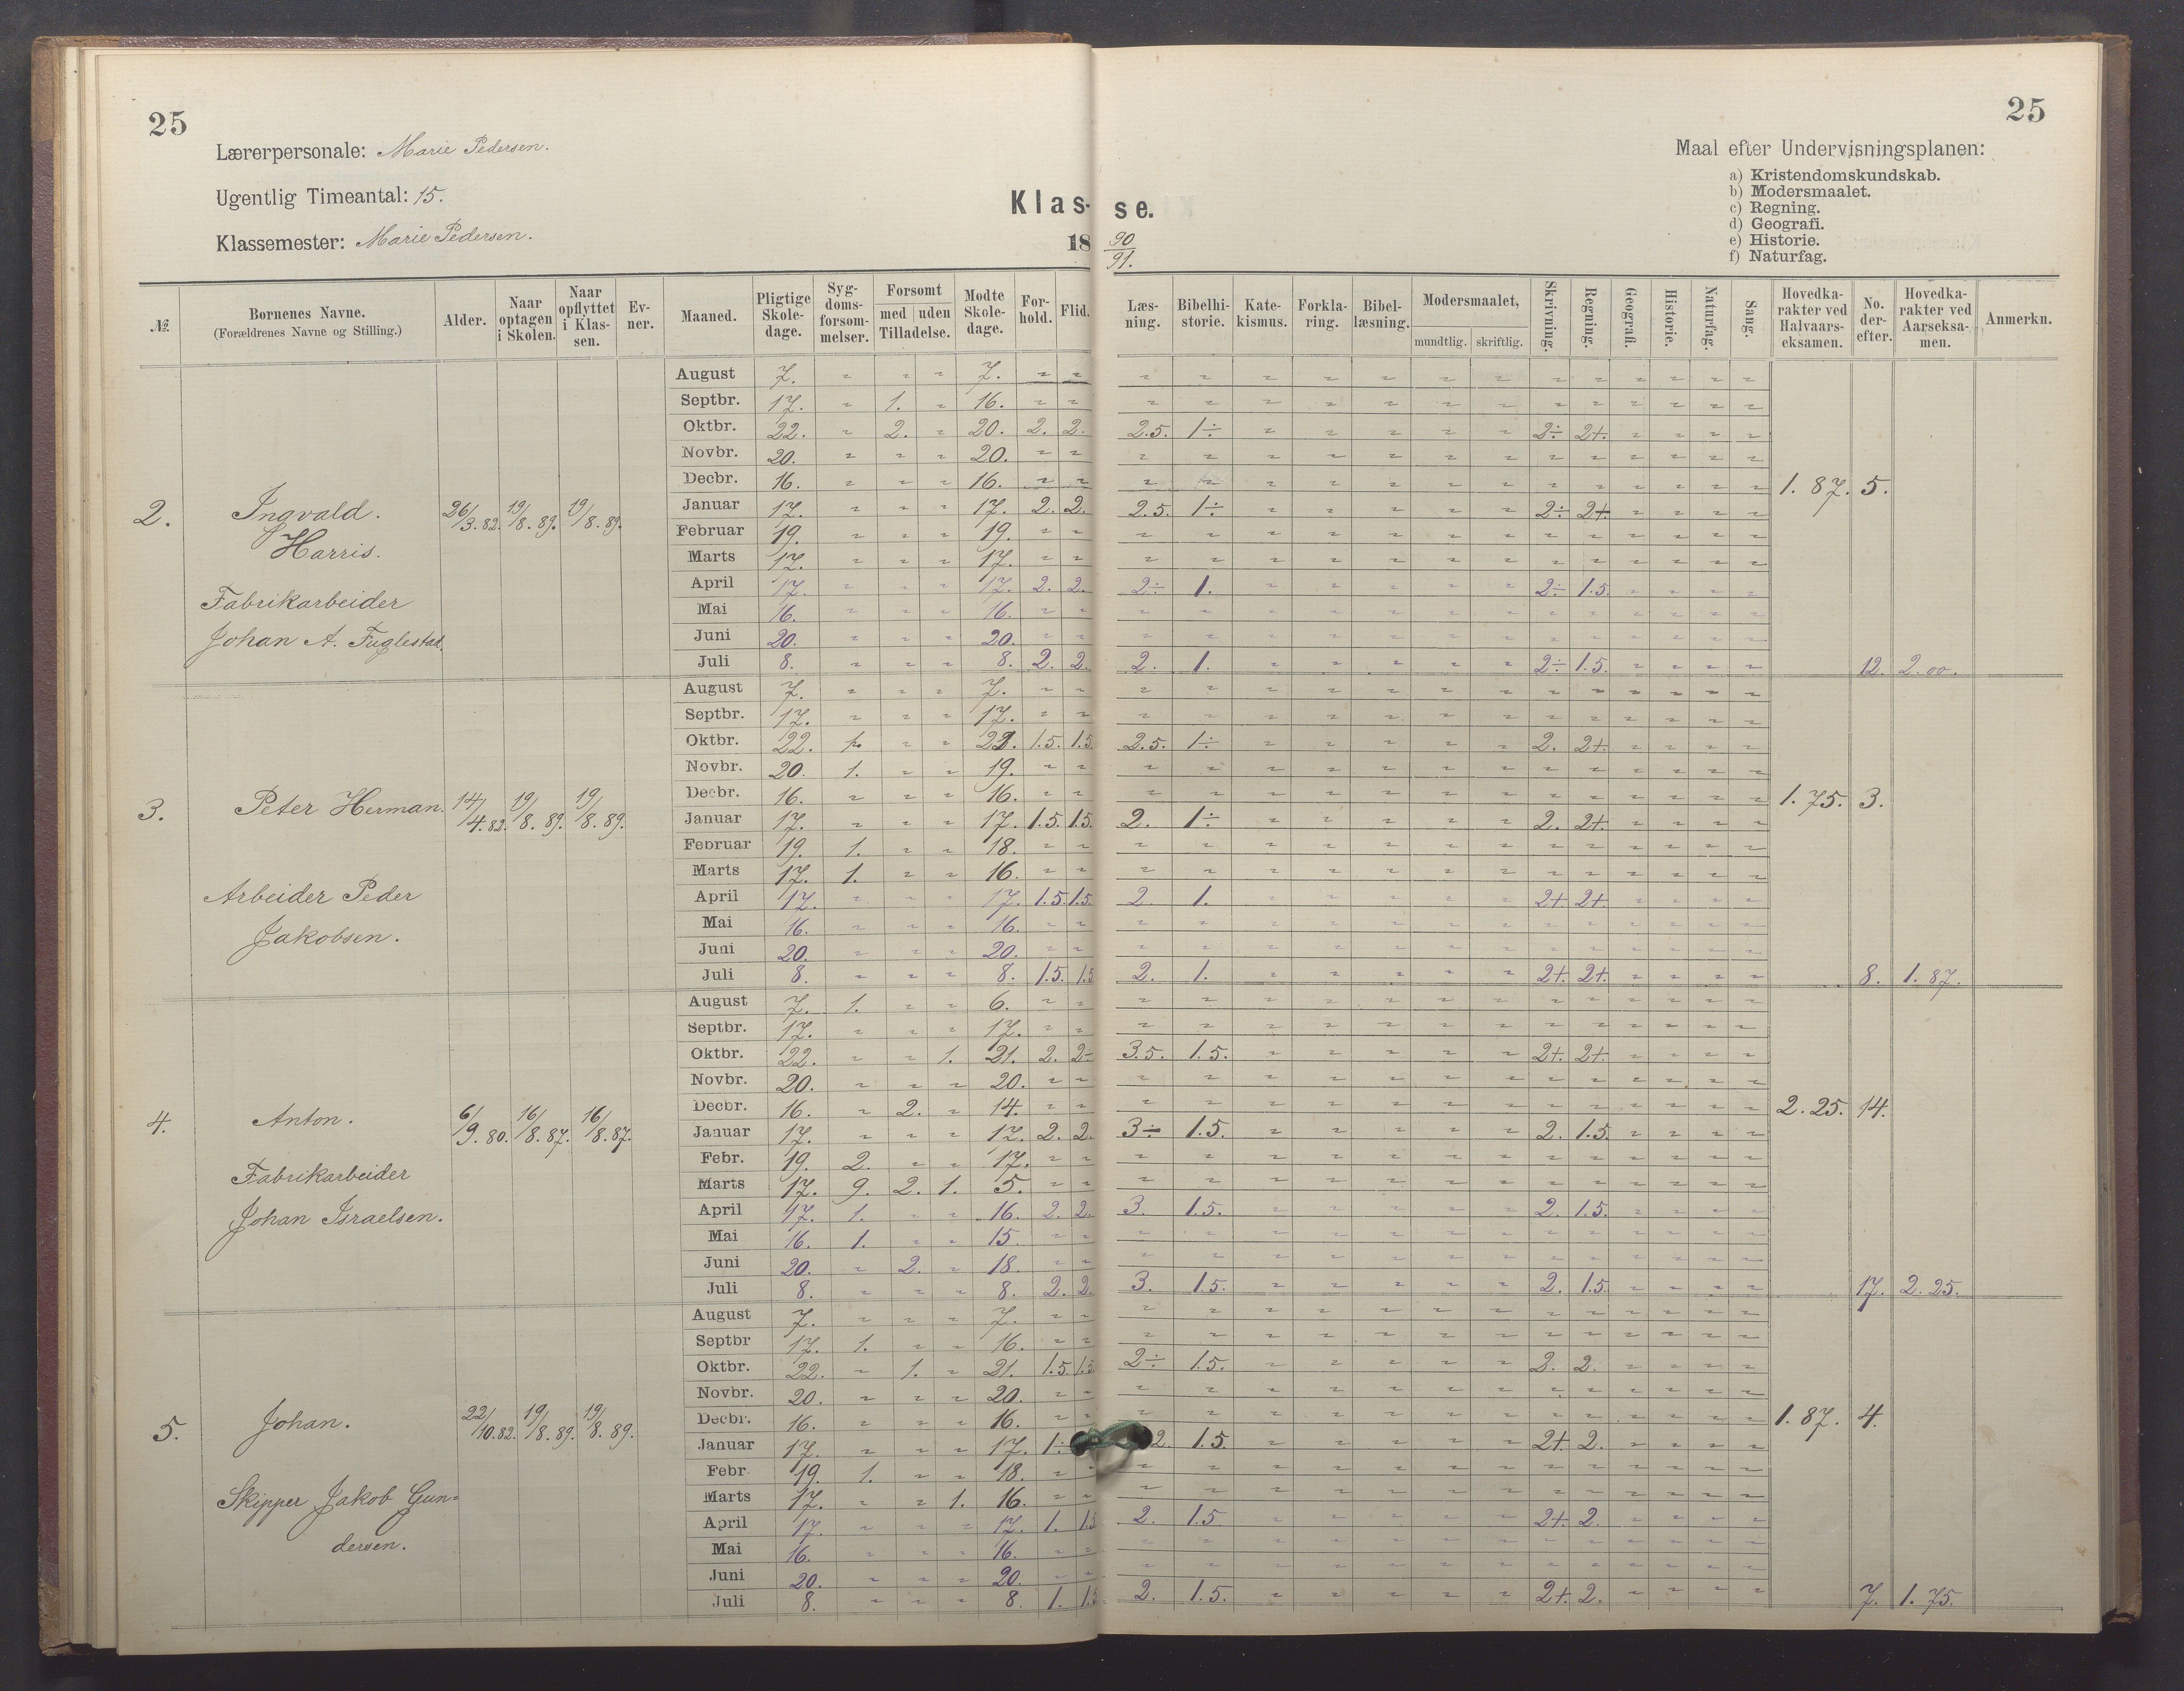 25
25
Lærerpersonale: Marie Pedersen.
Ugentlig Timeantal: 15.
Klassemester: Marie Pedersen.
Klas- se.
18 90/91.
Maal efter Undervisningsplanen:
a) Kristendomskundskab.
b) Modersmaalet.
c) Regning.
d) Geografi.
e) Historie.
f) Naturfag.
№ Børnenes Navne. (Forældrenes Navne og Stilling.) Alder. Naar optagen i Skolen. Naar opflyttet i Klassen. Evner. Maaned. Pligtige Skoledage. Sygdomsforsommelser. Forsomt med uden Tilladelse. Modte Skoledage. Forhold. Flid. Læsning. Bibelhistorie. Katekismus. Forklaring. Bibellæsning. Modersmaalet, mundtlig. skriftlig. Skrivning. Regning. Geografi. Historie. Naturfag. Sang. Hovedkarakter ved Halvaarseksamen. No. derefter. Hovedkarakter ved Aarseksamen. Anmerkn.
2. Ingvald. Harris. 26/3.82. 19/8.89. 19/8.89.
Fabrikarbeider
Johan A. Fuglestad.
August 7. " " " 7. " " " " " " " " " " " " " " "
Septbr. 17. " 1. " 16. " " " " " " " " " " " " " " "
Oktbr. 22. " 2. " 20. 2. 2. 2.5. 1÷ " " " " " 2÷ 2+. " " " "
Novbr. 20. " " " 20. " " " " " " " " " " " " " " "
Decbr. 16. " " " 16. " " " " " " " " " " " " " " " 1.87. 5.
Januar 17. " " " 17. 2. 2. 2.5. 1÷ " " " " " 2÷ 2+. " " " "
Februar 19. " " " 19. " " " " " " " " " " " " " " "
Marts 17. " " " 17. " " " " " " " " " " " " " " "
April 17. " " " 17. 2. 2. 2÷ 1. " " " " " 2÷ 1.5. " " " "
Mai 16. " " " 16. " " " " " " " " " " " " " " "
Juni 20. " " " 20. " " " " " " " " " " " " " " "
Juli 8. " " " 8. 2. 2. 2. 1. " " " " " 2÷ 1.5. " " " " 12. 2.00.
3. Peter Herman. 14/4.82. 19/8.89. 19/8.89.
Arbeider Peder
Jakobsen.
August 7. " " " 7. " " " " " " " " " " " " " " "
Septbr. 17. " " " 17. " " " " " " " " " " " " " " "
Oktbr. 22. " " 1.5. 1.5. 2.5. 1÷ " " " " " 2. 2+. " " " "
Novbr. 20. 1. " " 19. " " " " " " " " " " " " " " "
Decbr. 16. " " " 16. " " " " " " " " " " " " " " " 1.75. 3.
Januar 17. " " " 17. 1.5. 1.5. 2. 1÷ " " " " " 2. 2+. " " " "
Februar 19. 1. " " 18. " " " " " " " " " " " " " " "
Marts 17. 1. " " 16. " " " " " " " " " " " " " " "
April 17. " " " 17. 1.5. 1.5. 2. 1. " " " " " 2+. 2+. " " " "
Mai 16. " " " 16. " " " " " " " " " " " " " " "
Juni 20. " " " 20. " " " " " " " " " " " " " " "
Juli 8. " " " 8. 1.5. 1.5 2. 1. " " " " " 2+. 2+. " " " " 8. 1.87.
4. Anton. 6/9.80. 16/8.87. 16/8.87.
Fabrikarbeider
Johan Israelsen.
August 7. 1. " " 6. " " " " " " " " " " " " " " "
Septbr. 17. " " " 17. " " " " " " " " " " " " " " "
Oktbr. 22. " " 1. 21. 2. 2÷ 3.5. 1.5. " " " " " 2+. 2+. " " " "
Novbr. 20. " " " 20. " " " " " " " " " " " " " " "
Decbr. 16. " 2. " 14. " " " " " " " " " " " " " " " 2.25. 14.
Januar 17. " " " 17. 2. 2. 3÷ 1.5. " " " " " 2. 1.5. " " " "
Febr. 19. 2. " " 17. " " " " " " " " " " " " " " "
Marts 17. 9. 2. 1. 5. " " " " " " " " " " " " " " "
April 17. 1. " " 16. 2. 2. 3. 1.5. " " " " " 2. 1.5. " " " "
Mai 16. 1. " " 15. " " " " " " " " " " " " " " "
Juni 20. " 2. " 18. " " " " " " " " " " " " " " "
Juli 8. " " " 8. 2. 2. 3. 1.5. " " " " " 2. 1.5. " " " " 17. 2.25.
5. Johan. 22/10.82. 19/8.89. 19/8.89.
Skipper Jakob Gun=
dersen.
August 7. " " " 7. " " " " " " " " " " " " " " "
Septbr 17. 1. " " 16. " " " " " " " " " " " " " " "
Oktbr. 22. " 1. " 21. 1.5. 1.5 2÷ 1.5. " " " " " 2. 2. " " " "
Novbr. 20. " " " 20. " " " " " " " " " " " " " " "
Decbr. 16. " " " 16. " " " " " " " " " " " " " " " 1.87. 4.
Januar 17. " " " 17. 1÷ 2. 1.5. " " " " " 2+. 2. " " " "
Febr 19. 1. " " 18. " " " " " " " " " " " " " " "
Marts 17. " " 1. 16. " " " " " " " " " " " " " " "
April 17. " " " 17. 1. 1.5 2. 1.5 " " " " " 2+. 2. " " " "
Mai 16. " " " 16. " " " " " " " " " " " " " " "
Juni 20. " " " 20. " " " " " " " " " " " " " " "
Juli 8. " " " 8. 1. 1.5 2. 1.5. " " " " " 2+. 2. " " " " 7. 1.75.